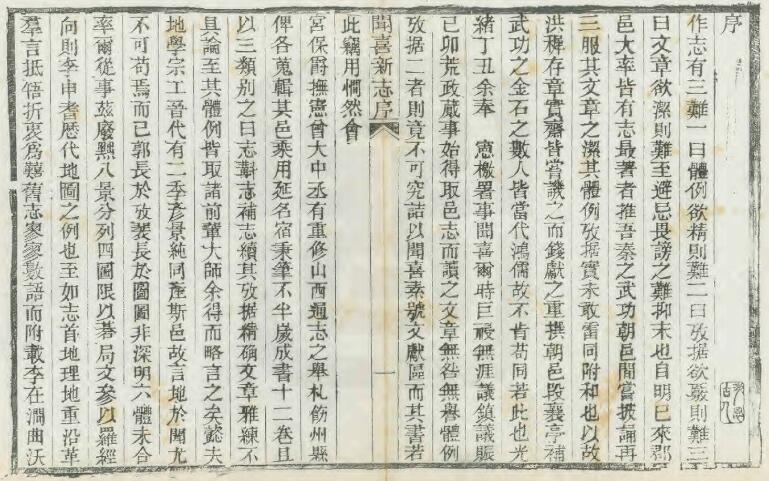 序
作志有三難一曰體例欲精則難二曰攷据欲覈則難三
曰文章欲潔則難至避忌畏謗之難抑末也自明已來郡
邑大率皆有志最著者推吾秦之武功朝邑間嘗披誦再
三服其文章之潔其體例攷据實未敢雷同附和也以故
洪穉存章實齋皆嘗議之而錢獻之重撰朝邑段襄亭補
武功之金石之數人皆當代鴻儒故不肯苟同若此也光
緒丁丑余奉 憲檄署事聞喜爾時巨祲無涯議鎮議賑
己卯荒政蕆事始得取邑志而讀之文章無咎無譽體例
攷据二者則竟不可究詰以聞喜素號文獻區而其書若
聞喜新志序
一
此竊用憫然會
宮保爵撫憲曾大中丞有重修山西通志之舉札飭州縣
俾各蒐輯其邑乘用延名宿秉筆不半歲成書十二卷且
以三類別之曰志斠志補志續其攷据精确文章雅練不
且論至其體例皆取諸前輩大師余得而略言之矣懿夫
地學宗工晉代有二季彥景純同產斯邑故言地於聞尤
不可苟焉而已郭長於攷裴長於圖圖非深明六體未合
率爾從事茲廢黜八景分列四圖限以碁局文參以羅經
向則李申耆歷代地圖之例也至如志首地理地重沿革
羣言抵牾折衷爲難舊志寥寥數語而附載李在澗曲沃